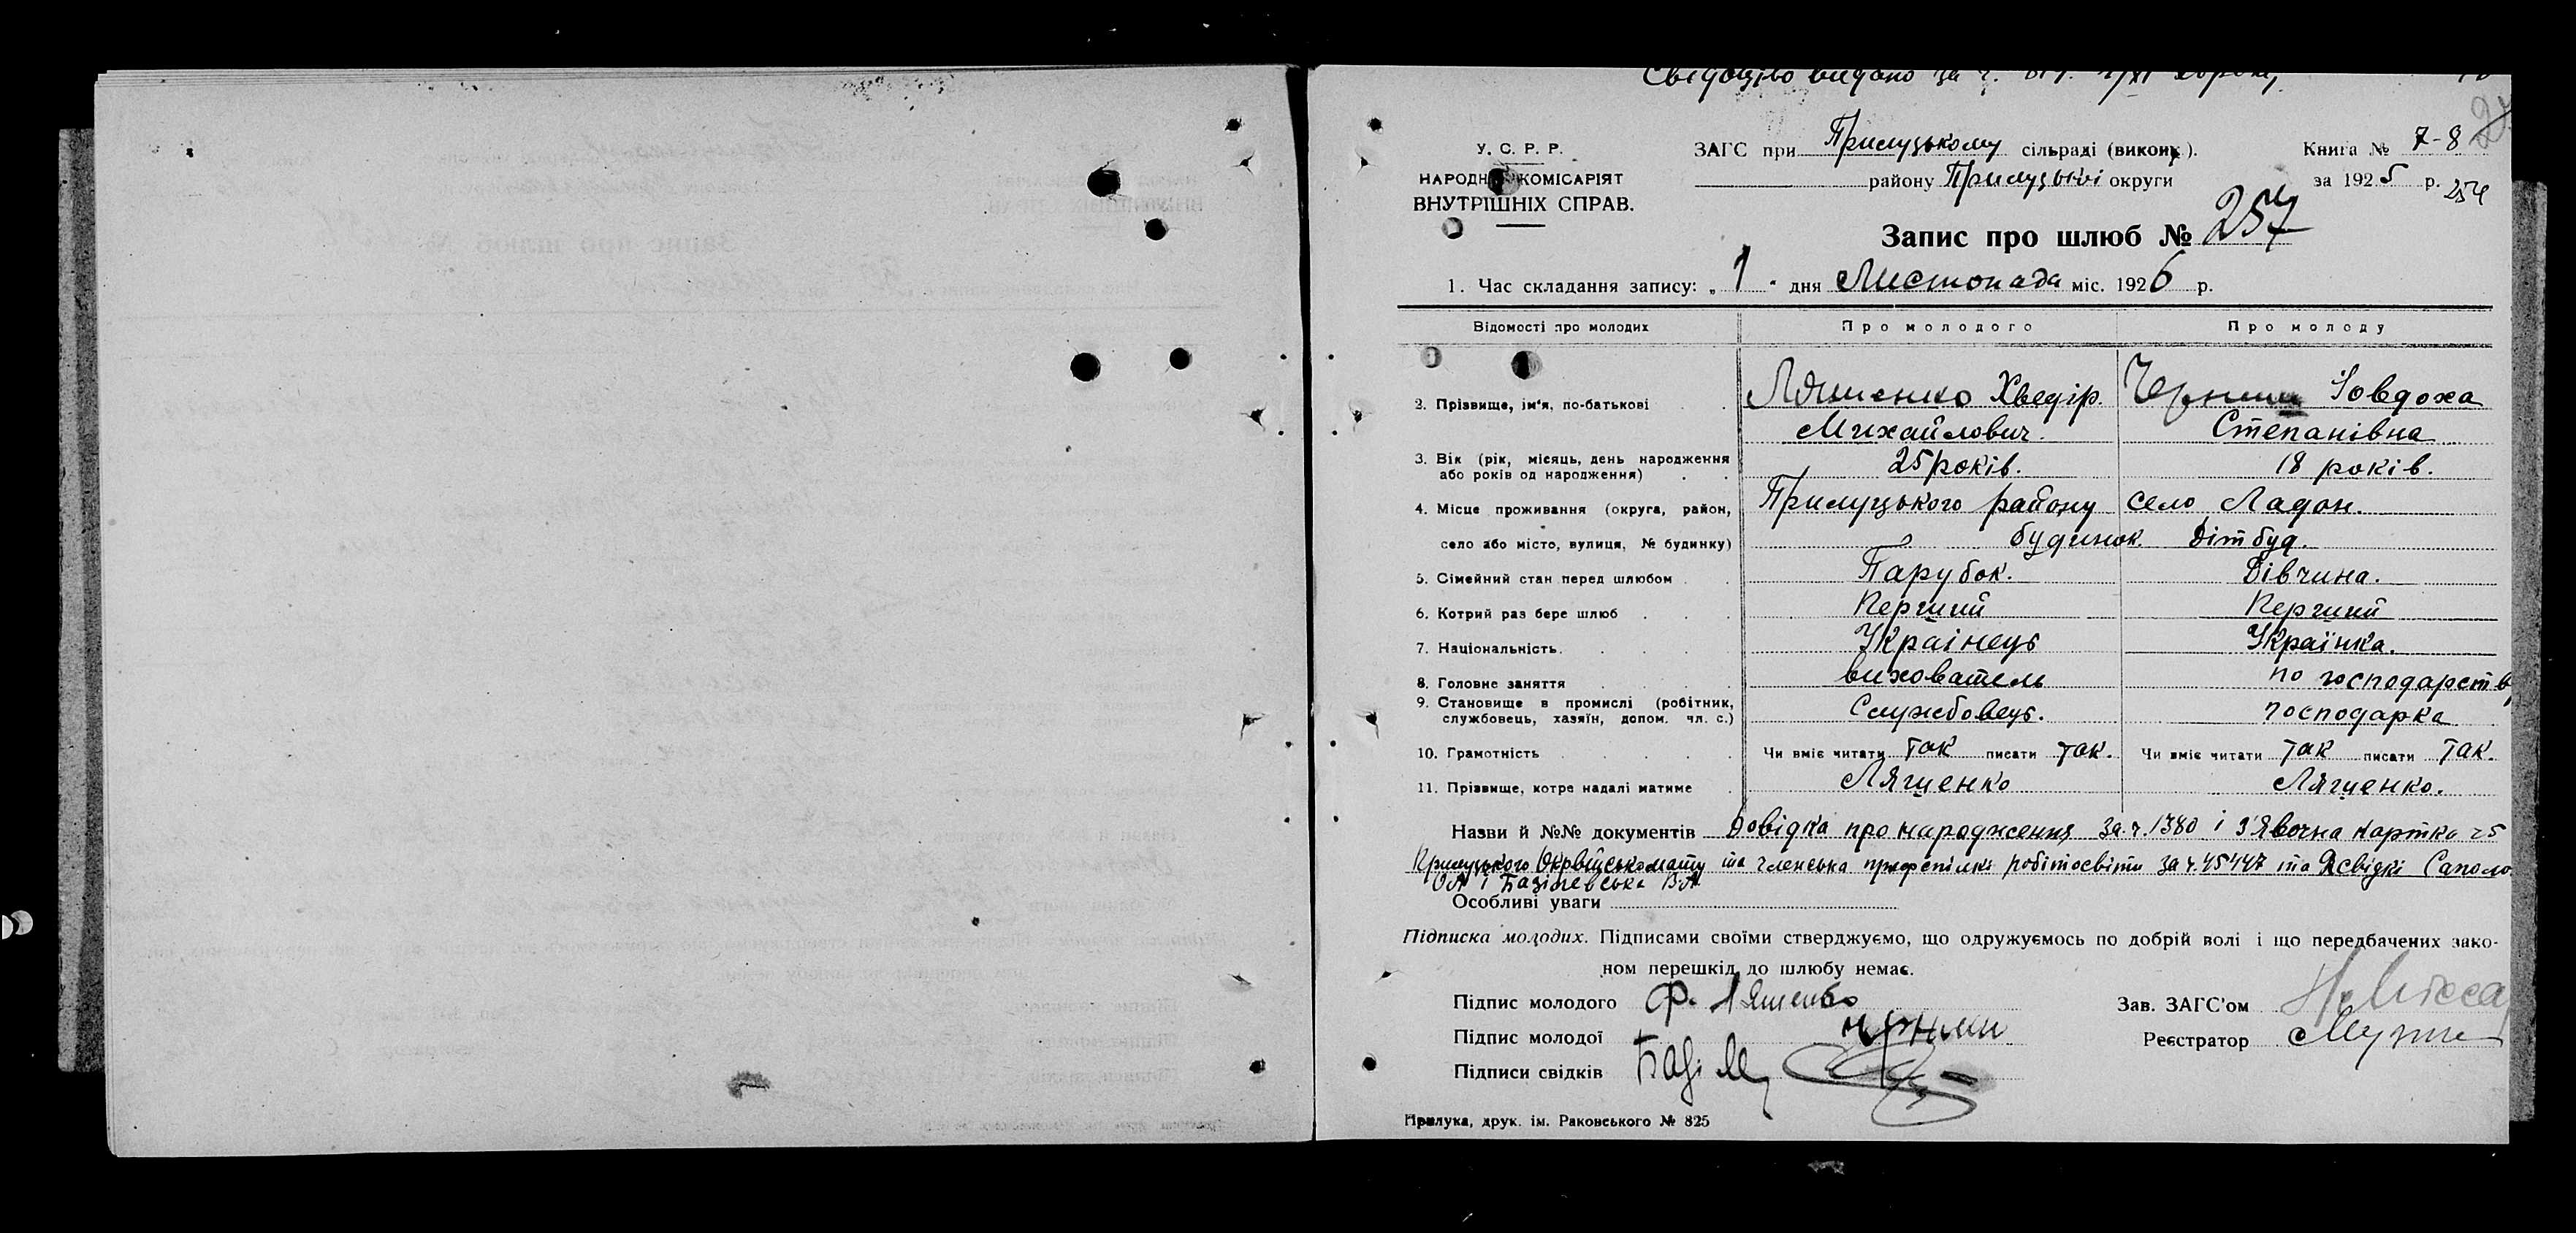 Свідоцтво видано за ч.
У. С. Р. Р.
НАРОДНІЙ КОМІСАРІЯТ
ВНУТРІШНІХ СПРАВ.
ЗАГС при Прилуцькому сільраді (виконк).
району Прилуцької округи
Книга № 7-8
за 1925 р.
254
Запис про шлюб № 257
1. Час складання запису: „1" дня Листопада міс. 1926 р.
Відомості про молодих Про молодого Про молоду
2. Прізвище, ім'я, по-батькові Ляшенко Хведір Михайлович. Черниш Йовдоха Степанівна
3. Вік (рік, місяць, день народження або років од народження) 25 років. 18 років.
4. Місце проживання (округа, район, Прилуцького району село Ладан.
село або місто, вулиця, № будинку) будинок Дітбуд.
5. Сімейний стан перед шлюбом Парубок. Дівчина.
6. Котрий раз бере шлюб Перший Перший
7. Національність. Українець Українка.
8. Головне заняття вихователь по господарств
9. Становище в промислі (робітник, службовець, хазяїн, допом. чл. с.) Службовець. господарка
10. Грамотність Чи вміє читати так писати так. Чи вміє читати так писати так.
11. Прізвище, котре надалі матиме Лященко Лященко.
Назви й №№ документів Довідка про народження за ч. 1380 і з'явочна картка ч 5
Прилуцького Окрвійськомату та членська профспілки робітосвіти за ч. 45447 та свідкі
ОА і Базілевська ВА
Особливі уваги
Підписка молодих. Підписами своїми стверджуємо, що одружуємось по добрій волі і що передбачених зако-
ном перешкід до шлюбу немає.
Підпис молодого Ф. Ляшенко
Зав. ЗАГС'ом
Підпис молодої
Реєстратор
Підписи свідків
Прилука, друк. ім. Раковського № 825